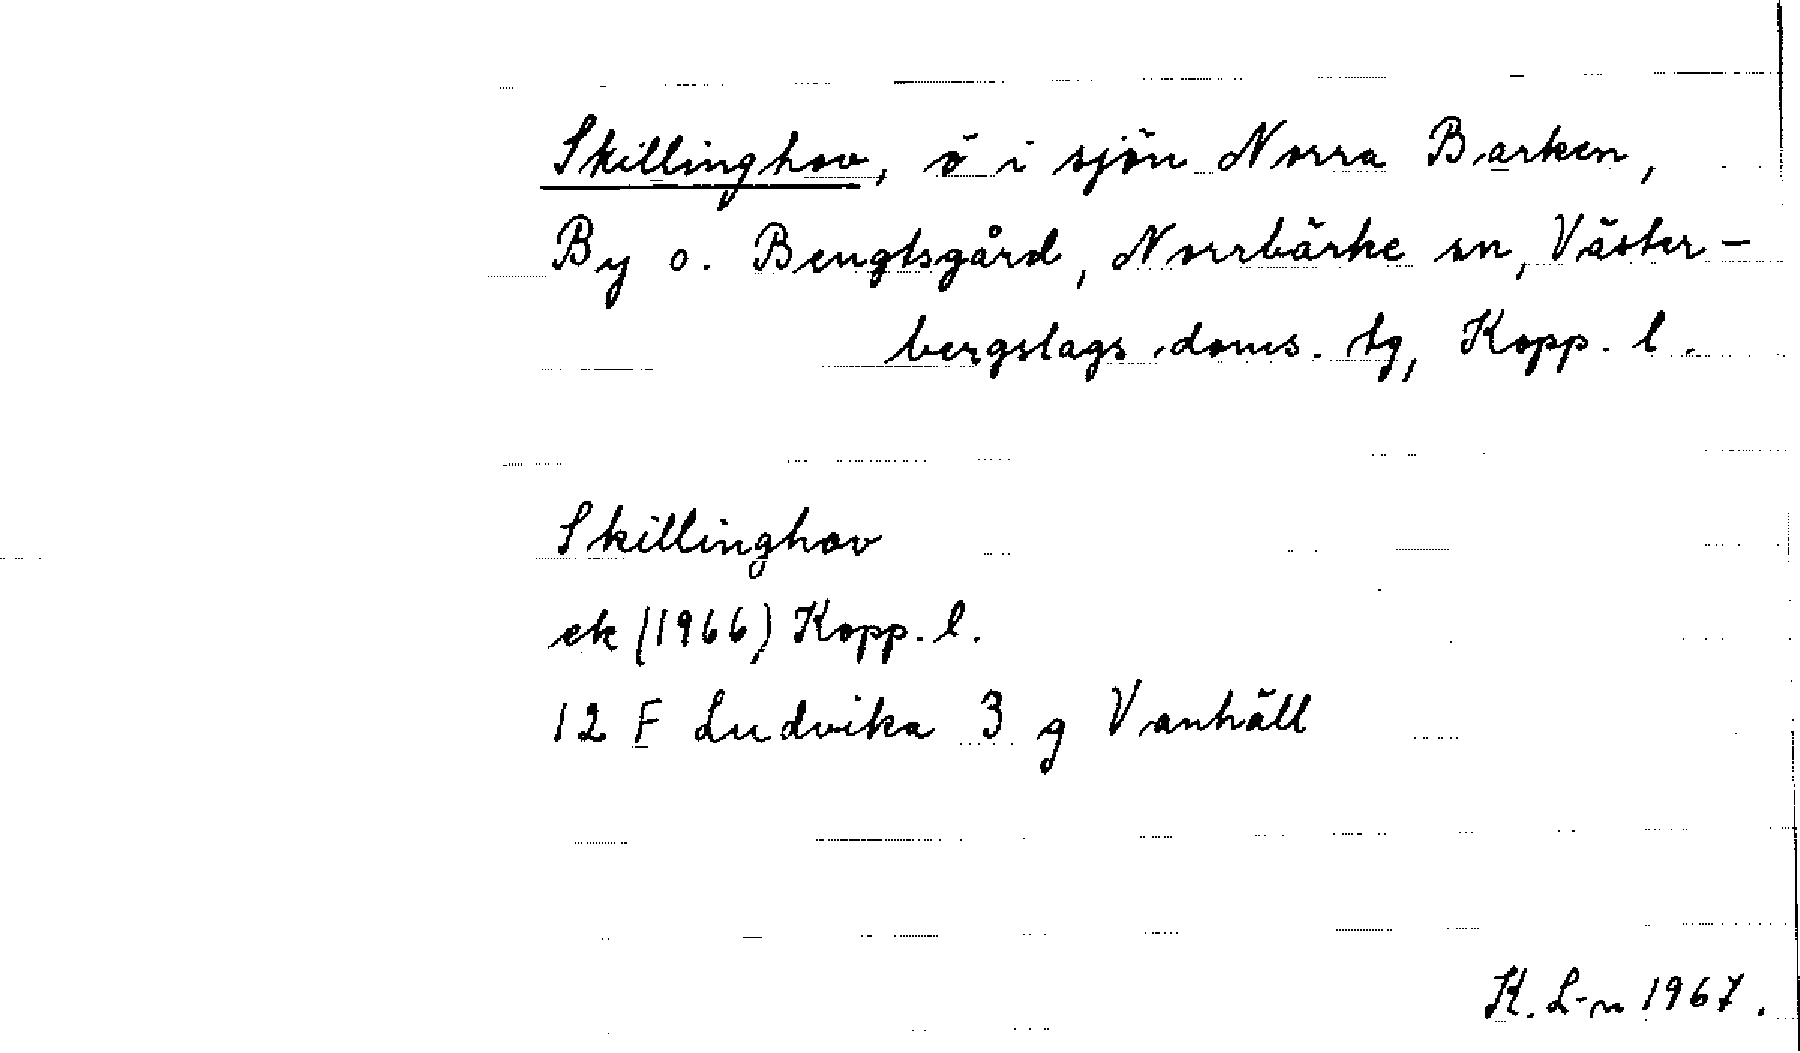 Skillinghov, ö i sjön Norra Barken,
By o. Bengtsgård, Norrbärke sn, Väster-
bergslags doms. tg, Kopp. l.
Skillinghov
ek (1966) Kopp. l.
12 F Ludvika 3 g Vanhäll
K. L-n 1967.